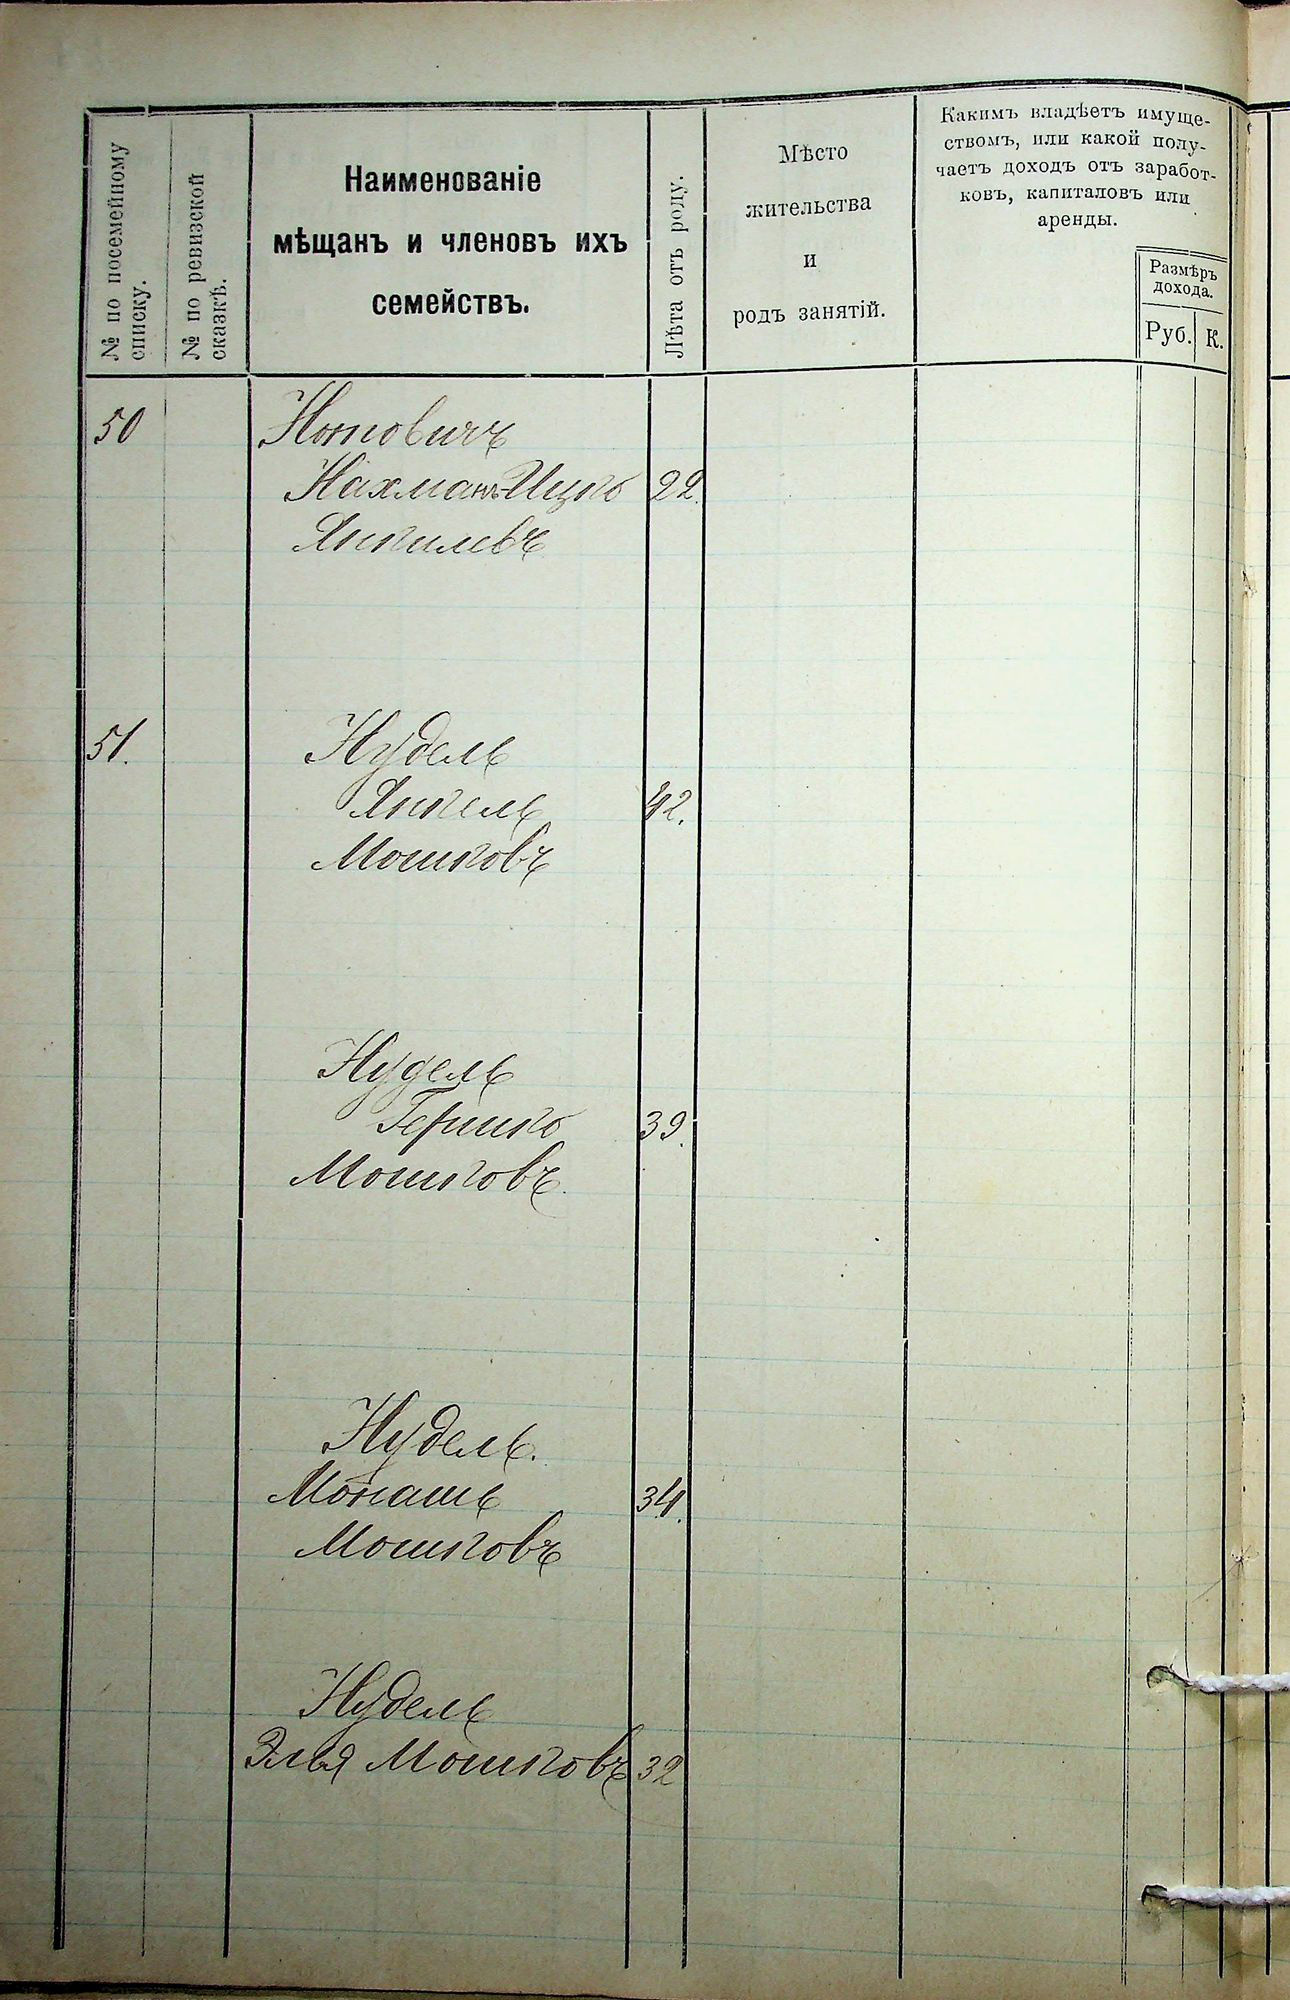 № по посемейному
списку.
№ по ревизской
сказкѣ.
Наименованіе
мѣщанъ и членовъ ихъ
семействъ.
Лѣта отъ роду.
Мѣсто
жительства
и
родъ занятій.
Какимъ владѣетъ имуще-
ствомъ, или какой полу-
чаетъ доходъ отъ заработ-
ковъ, капиталовъ или
аренды.
Размѣръ
дохода.
Руб. К.
50 Нотовичъ
Нахманъ-Ицко 22.
Янкилевъ
51. Нудель
Янкель 42.
Мошковъ
Нудель
Гершко 39.
Мошковъ.
Нудель.
Монашь 34.
Мошковъ
Нудель
Элья Мошковъ 32